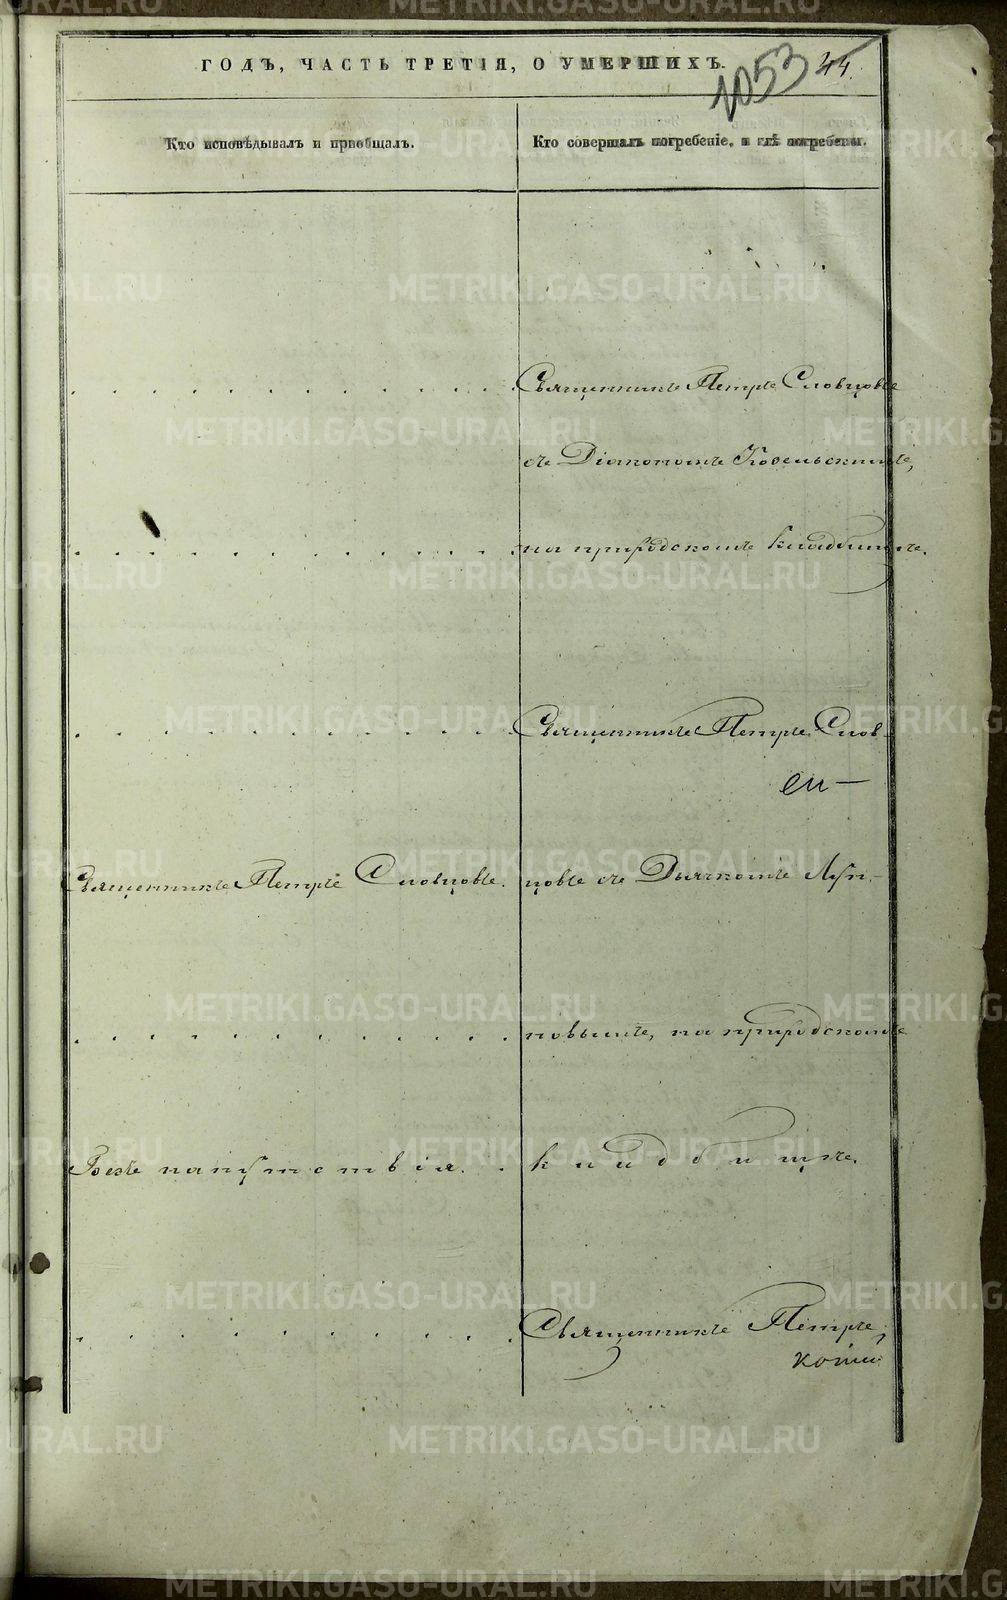 ГОДЪ, ЧАСТЬ ТРЕТІЯ, О УМЕРШИХЪ.
1053
44.
Кто исповѣдывалъ и пріобщалъ.
Кто совершалъ погребеніе, и гдѣ погребены.
Священникъ Петръ Словцовъ
съ Діакономъ Косельскимъ,
на природскомъ кладбищѣ.
Священникъ Петръ Слов-
Священникъ Петръ Словцовъ.
цовъ съ Дьячкомъ Луп-
повымъ, на природскомъ
Безъ напутствія.
кладбищѣ.
Священникъ Петръ
METRIKI.GASO-URAL.RU